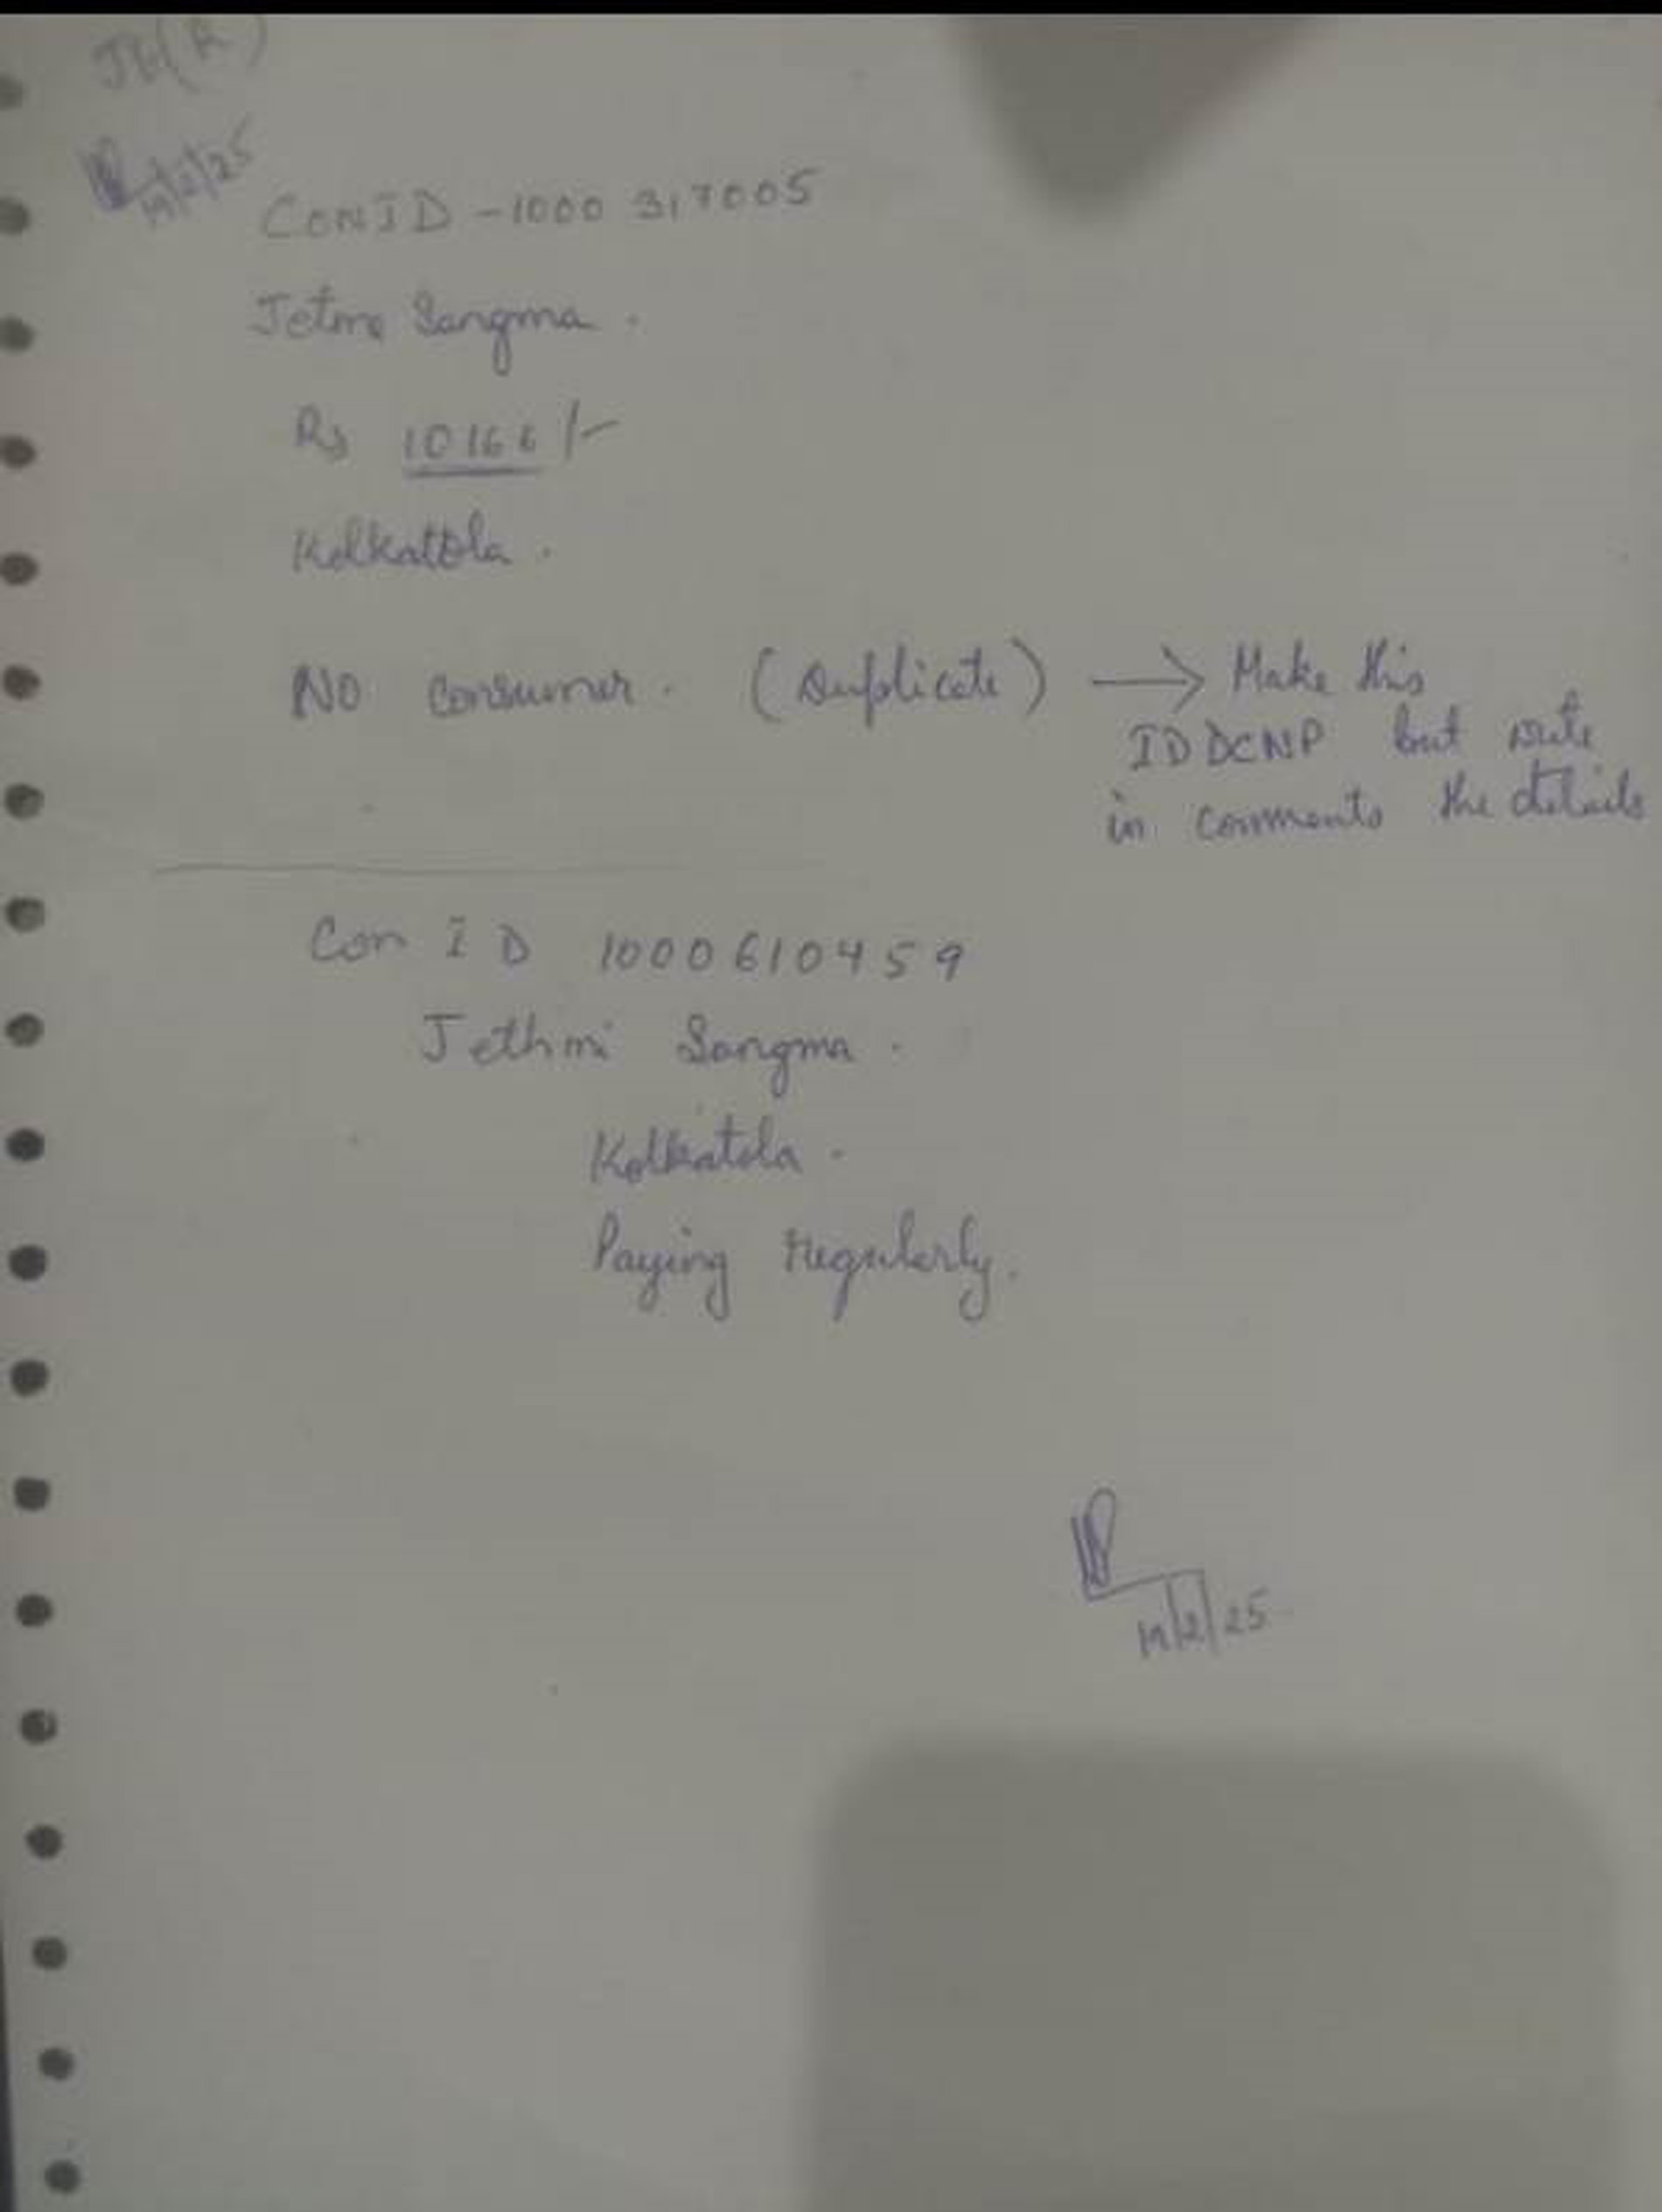 JH(R)
19/2/25
ConID - 1000 317005
Jetme Sangma.
Rs 10166/-
Kolkattola.
NO consumer. (Duplicate) → Make this
ID DCNP but write
in comments the details
Con ID 1000610459
Jethmi Sangma.
Kolkatola.
Paying regularly.
19/2/25